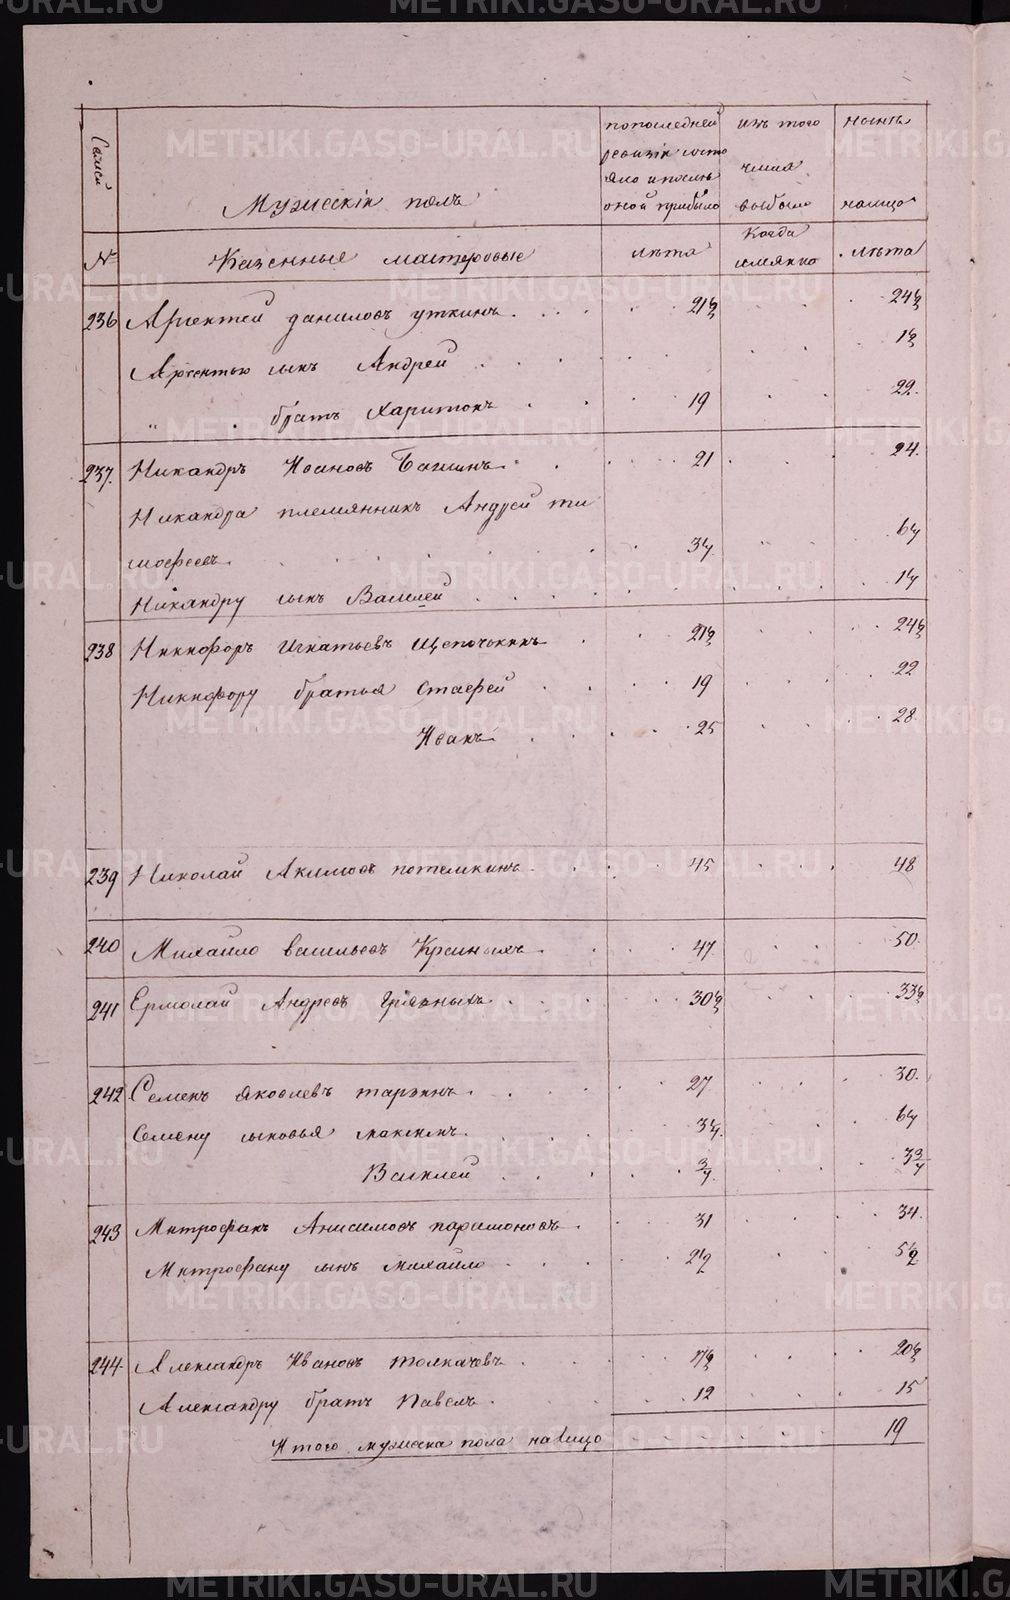 METRIKI.GASO-URAL.RU
Семей
Мужескій полъ
по последней ревизіи состояло и послѣ оной прибыло
изъ того числа выбыло
нынѣ налицо
№
Казенные мастеровые
лѣта
Когда имянно
лѣта
236 Арсентей даниловъ уткинъ 21½ 24½
Арсентью сынъ Андрей 1½
" братъ Харитонъ 19 22.
237. Никандръ Ивановъ 21 24.
Никандра племянникъ Андрей ти
мофеевъ 3¼ 6¼
Никандру сынъ Василей 1¼
238 Никифоръ Игнатьевъ Щепочькинъ 21½ 24½
Никифору братья Стафей 19 22
Иванъ 25 28.
239 Николай Акимовъ потемкинъ 45 48
240 Михайло васильевъ 47 50.
241 Ермолай Андреевъ грязныхъ 30½ 33½
242 Семенъ яковлевъ 27 30.
Семену сыновья максимъ 3¼. 6¼
Василей ¾. 3¾
243 Митрофанъ Анисимовъ парамоновъ 31 34.
Митрофану сынъ михайло 2½ 5½
244. Александръ Ивановъ толкачевъ 17½ 20½
Александру братъ Павелъ 12 15
Итого мужеска пола налицо 19